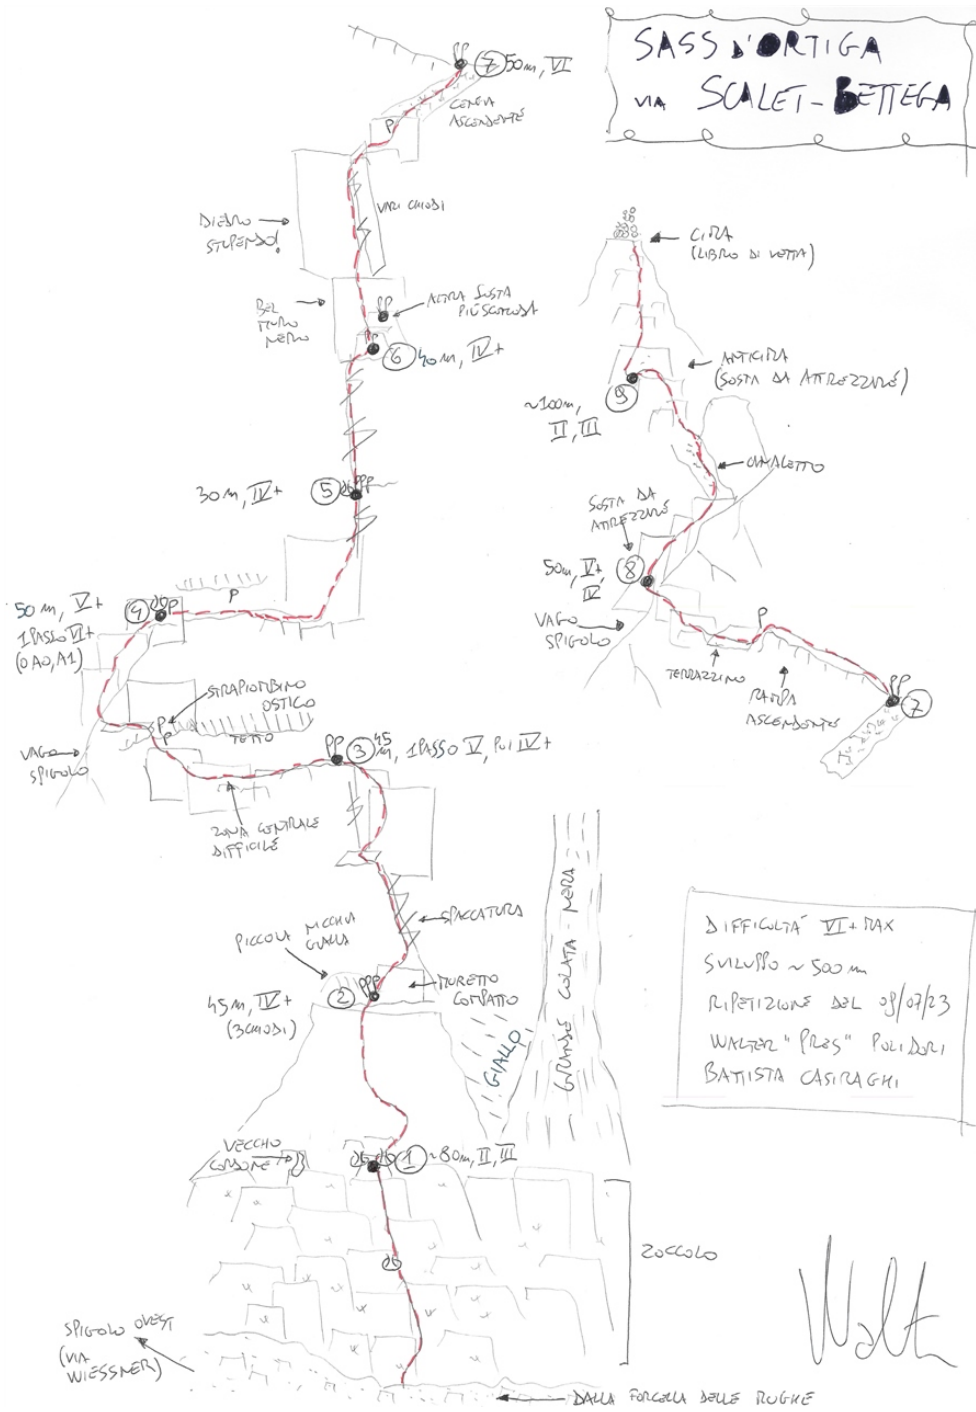 SASS D'ORTIGA
VIA SCALET-BETTEGA
7 50m, VI
CENGIA
ASCENDENTE
P
DIEDRO
STUPENDO!
VARI CHIODI
BEL
MURO
NERO
ALTRA SOSTA
PIÙ SCOMODA
6 40m, IV+
30m, IV+ 5
50m, V+
1 PASSO VI+
(O A0, A1)
4
P
STRAPIOMBINO
OSTICO
TETTO
VAGO
SPIGOLO
3 45
m, 1 PASSO V, POI IV+
ZONA CENTRALE
DIFFICILE
SPACCATURA
PICCOLA NICCHIA
GIALLA
2
45m, IV+
(3 CHIODI)
MURETTO
COMPATTO
GIALLO
GRANDE COLATA NERA
VECCHIO
CORDONE
1 ~80m, II, III
ZOCCOLO
SPIGOLO OVEST
(VIA
WIESSNER)
DALLA FORCELLA DELLE MUGHE
CIMA
(LIBRO DI VETTA)
ANTICIMA
(SOSTA DA ATTREZZARE)
9
~100m,
II, III
CANALETTO
SOSTA DA
ATTREZZARE
50m, V+
IV
8
VAGO
SPIGOLO
P
TERRAZZINO
RAMPA
ASCENDENTE
PP
7
DIFFICOLTÀ VI+ MAX
SVILUPPO ~500m
RIPETIZIONE DEL 09/07/23
WALTER "PRES" POLIDORI
BATTISTA CASIRAGHI
Walt